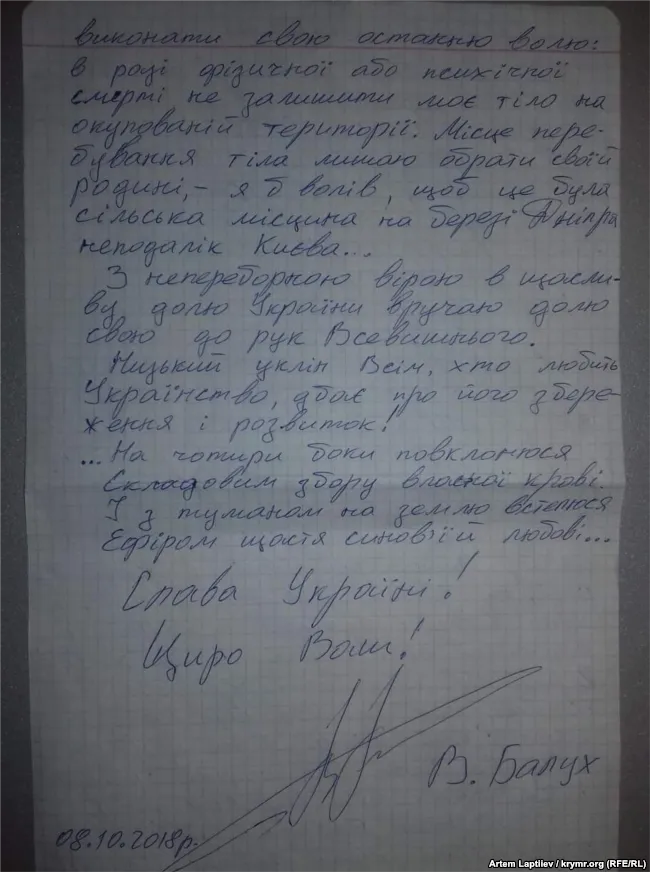 виконати свою останню волю:
в разі фізичної або психічної
смерті не залишити моє тіло на
окупованій території. Місце пере-
бування тіла лишаю обрати своїй
родині, – я б волів, щоб це була
сільська місцина на березі Дніпра
неподалік Києва...
З непереборною вірою в щасли-
ву долю України вручаю долю
свою до рук Всевишнього.
Низький уклін Всім, хто любить
Українство, дбає про його збере-
ження і розвиток!
...На чотири боки повклонюся
Складовим збору власної крові.
І з туманом на землю встелюся
Ефіром щастя синовʼїй любові...
Слава Україні!
Щиро Ваш!
В. Балух
08.10.2018р.
Artem Laptiiev / krymr.org (RFE/RL)